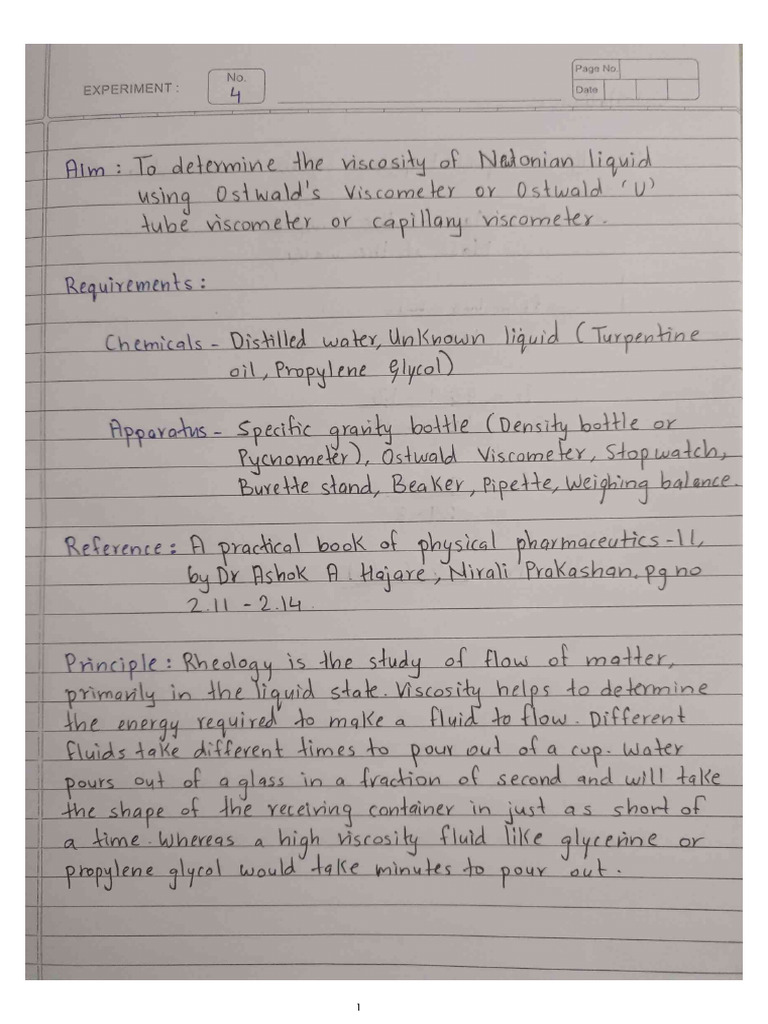 EXPERIMENT : No. 4
Page No.
Date
Aim : To determine the viscosity of Newtonian liquid
using Ostwald's Viscometer or Ostwald 'U'
tube viscometer or capillary viscometer.
Requirements :
Chemicals - Distilled water, Unknown liquid (Turpentine
oil, Propylene Glycol)
Apparatus - Specific gravity bottle (Density bottle or
Pycnometer), Ostwald Viscometer, Stopwatch,
Burette stand, Beaker, Pipette, Weighing balance.
Reference : A practical book of physical pharmaceutics -II,
by Dr Ashok A. Hajare, Nirali Prakashan, pg no
2.11 - 2.14.
Principle : Rheology is the study of flow of matter,
primarily in the liquid state. Viscosity helps to determine
the energy required to make a fluid to flow. Different
fluids take different times to pour out of a cup. Water
pours out of a glass in a fraction of second and will take
the shape of the receiving container in just as short of
a time. Whereas a high viscosity fluid like glycerine or
propylene glycol would take minutes to pour out.
1